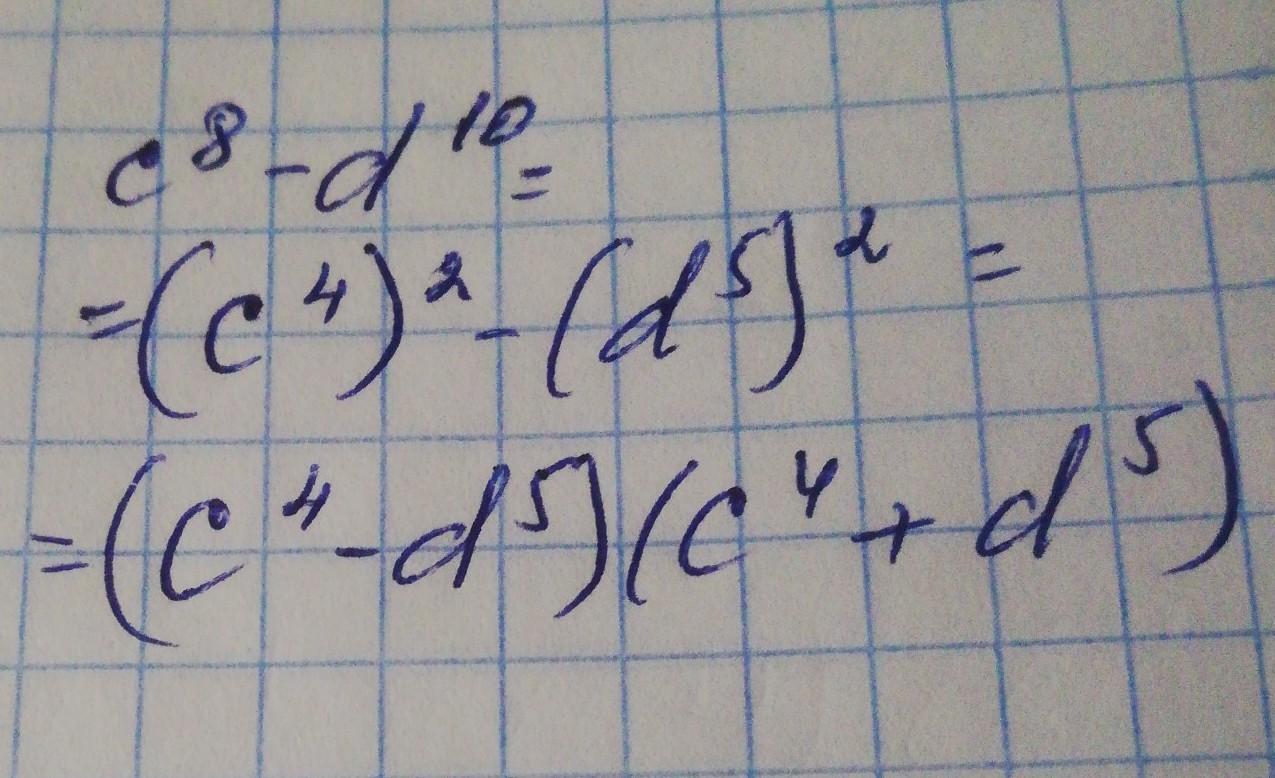 c⁸-d¹⁰=
=(c⁴)²-(d⁵)²=
=(c⁴-d⁵)(c⁴+d⁵)